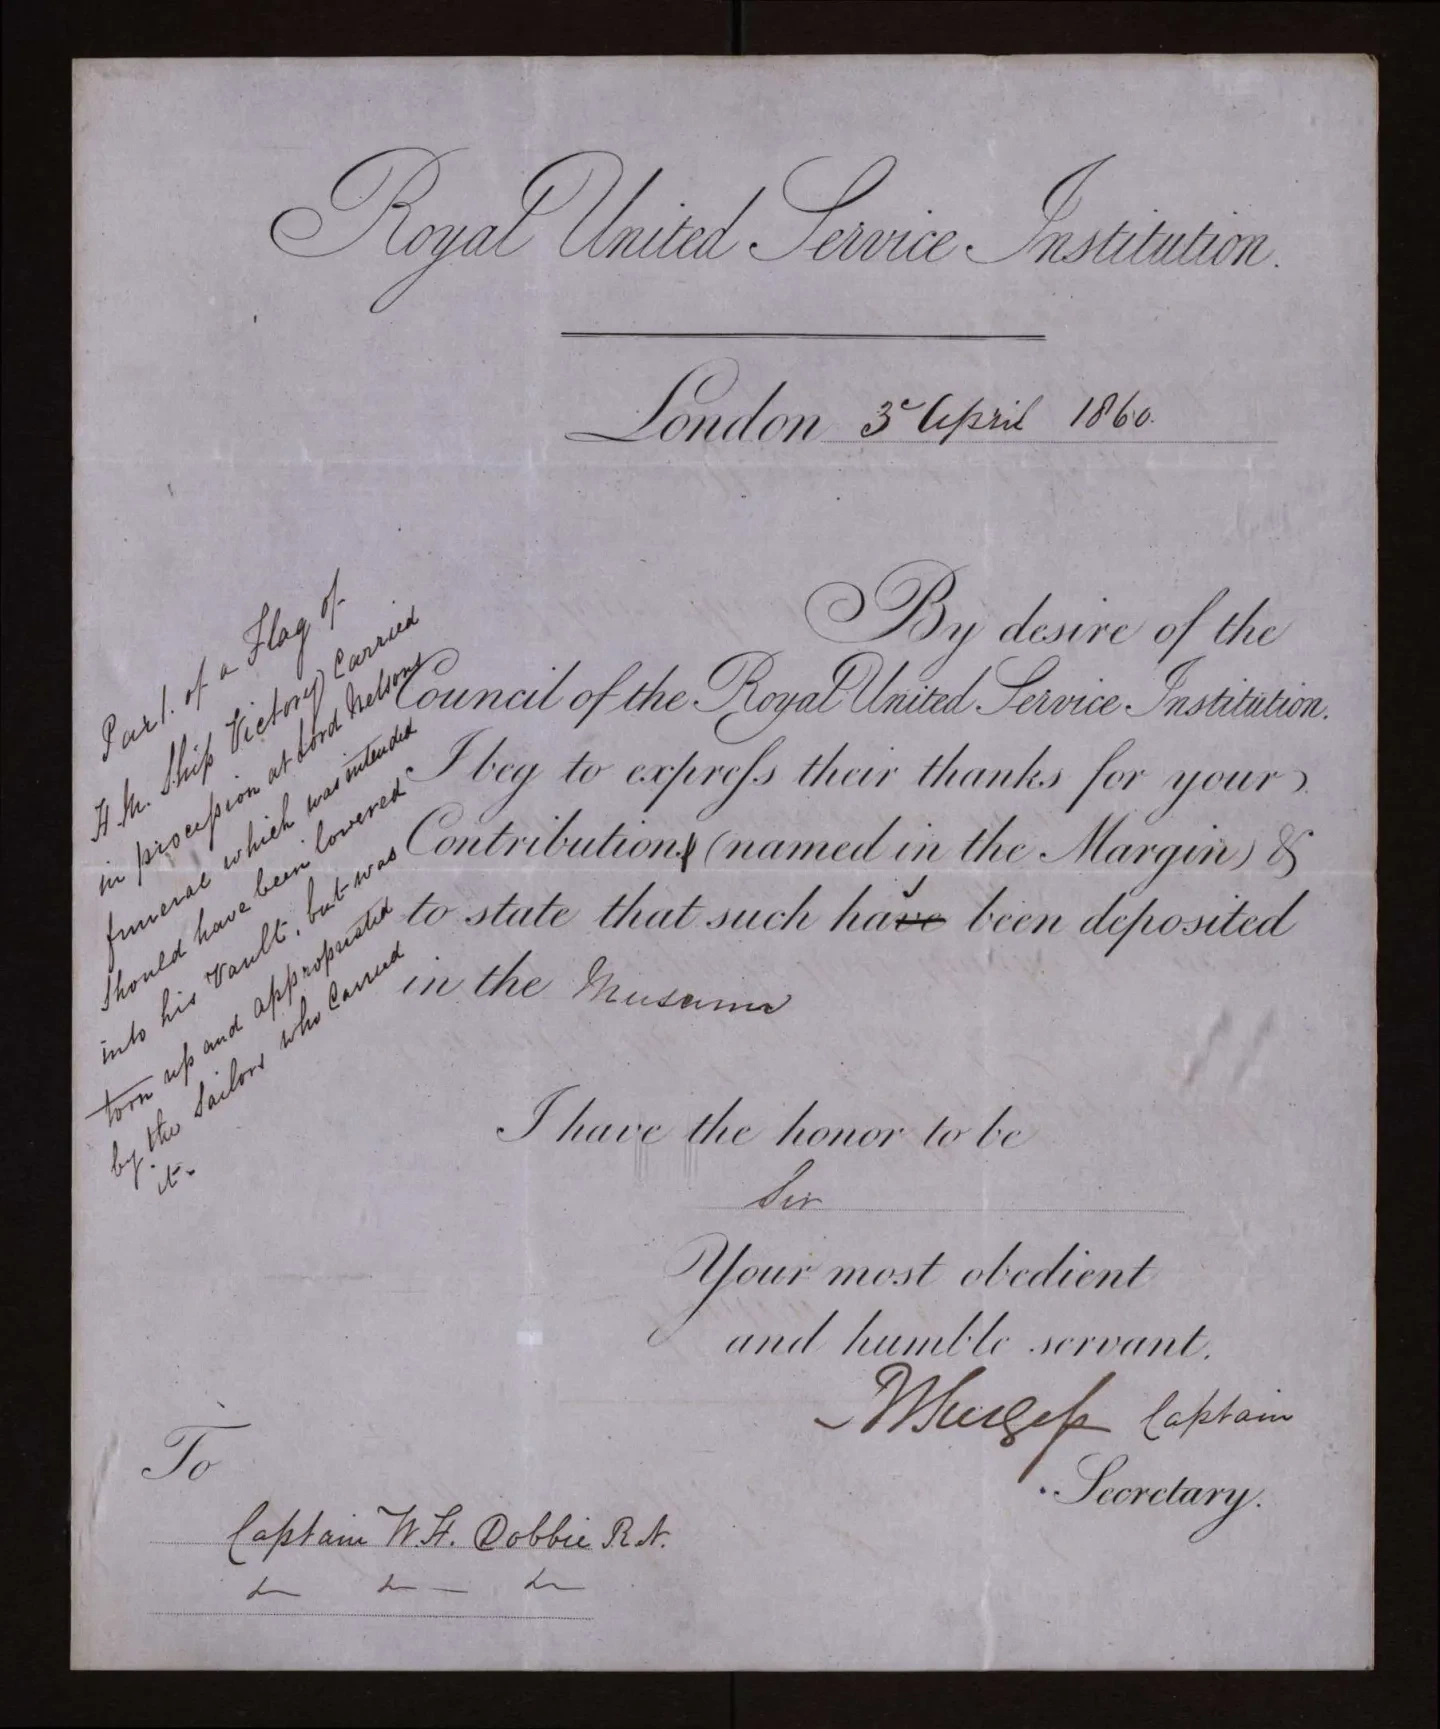 Royal United Service Institution.
London 3d April 1860.
Part. of a Flag of
H. M. Ship Victory carried
in procession at Lord Nelsons
funeral which was intended
should have been lowered
into his Vault, but was
torn up and appropriated
by the Sailors who carried
it.
By desire of the
Council of the Royal United Service Institution.
I beg to express their thanks for your
Contribution (named in the Margin) &
to state that such has been deposited
in the Museum
I have the honor to be
Sir
Your most obedient
and humble servant.
Burgess Captain
Secretary.
To
Captain W. H. Dobbie R.N.